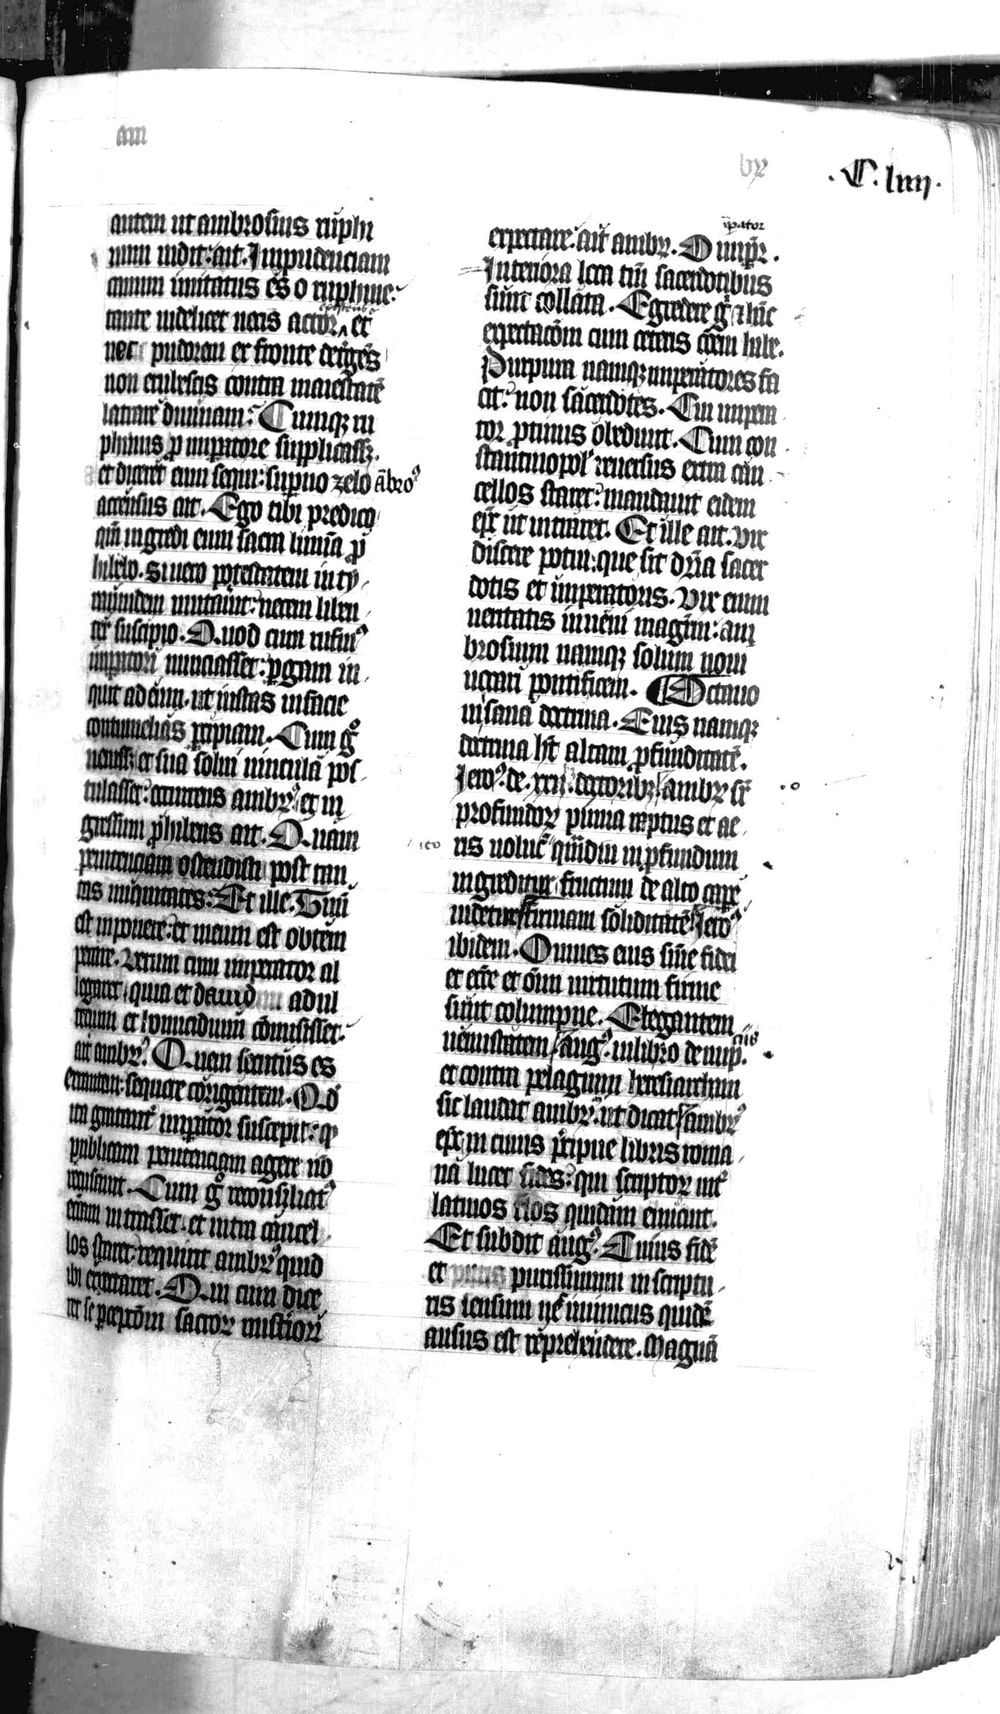 am
br
.C. liiij.
autem ut ambrosius ruphi
num uidit: ait. Impudenciam
canum imitatus es o ruphine:
tante uidelicet necis actor, et
nec pudorem et fronte detergēs
non erubescis contra maiestatē
latrare diuinam: Cumq; ru
phinus p imperatore supplicass;
et diceret eum sequi: superno zelo ābro⁹
accensus ait. Ego tibi predico
qm̄ ingredi eum sacra limīa p
hibebo. Si uero potestatem in ty
rannidem mutauit: necem liben
ter suscipio. Quod cum rufin⁹
impatori nunciasset: pgam in
quit ad eum. ut iustas in facie
contumelias pcipiam. Cum g̊
ueniss; et sua solui uincula pos
tulasset: occurrens ambr⁹. et in
gressum phibens ait. Quam
penitenciam ostendisti post tan
tas iniquitates: Et ille. Tuū
est inponere: et meum est obtem
perare. Verum cum imperator al
legaret quia et dauid adul
terium et homicidium cōmisisset:
ait ambr⁹. Quem secutus es
errantem: sequere corrigentem. Qd̄
ita gratant̄ imperator suscepit: q
publicam penitenciam agere nō
recusauit. Cum g̊ reconsiliat⁹
eccliam intrasset. et intra cancel
los staret: requirit ambr⁹ quid
ibi expectaret. Qui cum dice
ret se pceptōm sacror mistiorū
ipator
expectare: ait ambr⁹. O impr̄.
Interiora loca tm̄ sacerdotibus
sunt collata. Egredere g̊ hinc
expectacōm cum ceteris cōem habe.
Purpura namq; imperatores fa
cit: non sacerdotes. Cui impera
tor ptinus obediuit. Cum con
stantinopol reuersus extra can
cellos staret: mandauit eidem
ep̄c ut intraret. Et ille ait. vix
discere potui: que sit dr̄ia sacer
dotis et imperatoris. Vix enim
ueritatis inueni magrm̄: am
brosium namq; solum noui
uocari pontificem. Octauo
in sana doctrina. Eius namq;
doctrina ht̄ altam pfunditatē.
Iero⁹. de. xij. doctorib; ambr⁹ sr̄
profundor pinna raptus et ae
ris uoluc̄ quādiu in pfundum
ingreditur fructum de alto carpe
uidetur firmam soliditatē Iero⁹
ibidem. Omnes eius sn̄ie fidei
et ecc̄e et om̄ uirtutum firme
sunt columpne. Elegantem
uenustatem aug⁹. in libro de nup.
ciis
et contra pelagium heresiarcham
sic laudat ambr⁹. ut dicat ambr⁹
ep̄c in cuius p̄cipue libris roma
na lucet fides: qui scriptor int̄
latinos flos quidam enicuit.
Et subdit aug⁹. Cuius fidē
et purissimum in scriptu
ris sensum ne inimicus quidē
ausus est reprehendere. Magnā